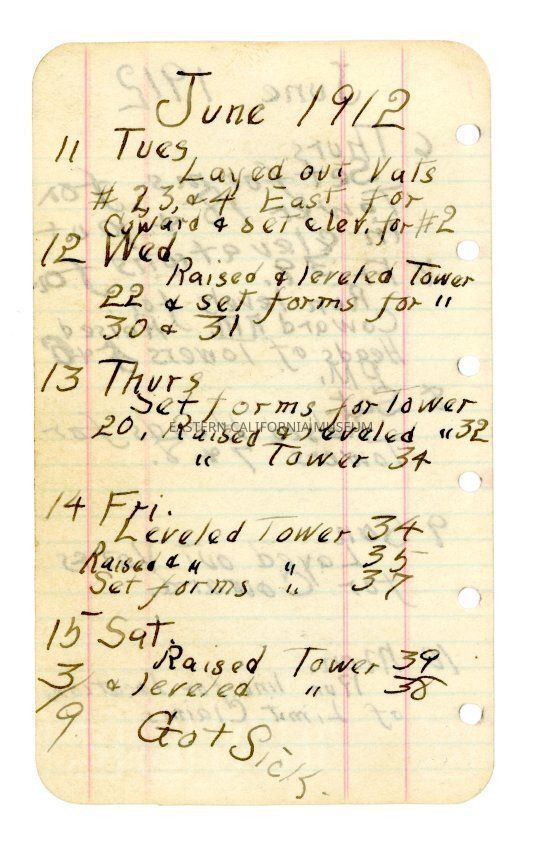 June 1912
11 Tues
Layed out Vats
# 2,3,&4 East for
Coward & set elev. for #2
12 Wed
Raised & leveled Tower
22 & set forms for "
30 & 31
13 Thurs
Set forms for Tower
20, Raised & leveled " 32
EASTERN CALIFORNIA MUSEUM
" Tower 34
14 Fri.
Leveled Tower 34
Raised & " " 35
Set forms " 37
15 Sat.
Raised Tower 39
3/9 & leveled " 38
Got Sick.